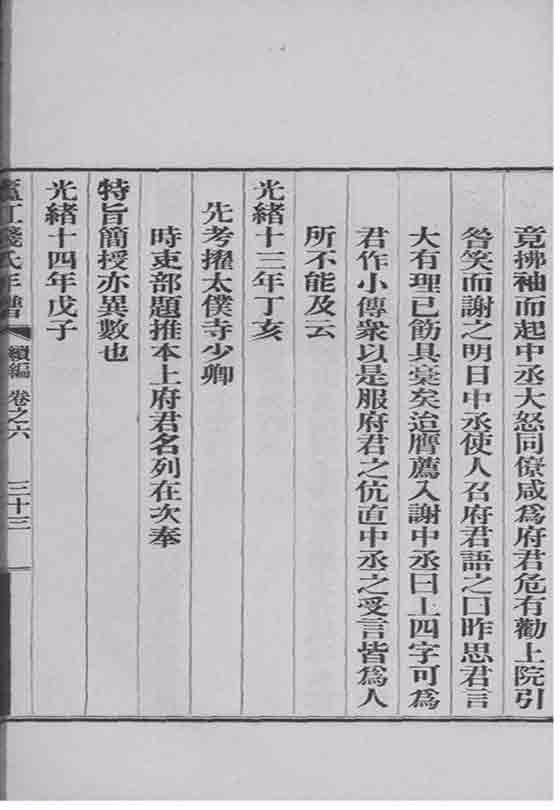 竟拂袖而起中丞大怒同僚咸爲府君危有勸上院引
咎笑而謝之明日中丞使人召府君語之曰昨思君言
大有理已飭具稾矣迨膺薦入謝中丞曰上四字可爲
君作小傳衆以是服府君之伉直中丞之受言皆爲人
所不能及云
光緒十三年丁亥
先考擢太僕寺少卿
時吏部題推本上府君名列在次奉
特旨簡授亦異數也
光緒十四年戊子
廬江錢氏年譜
續編
卷之六
三十三